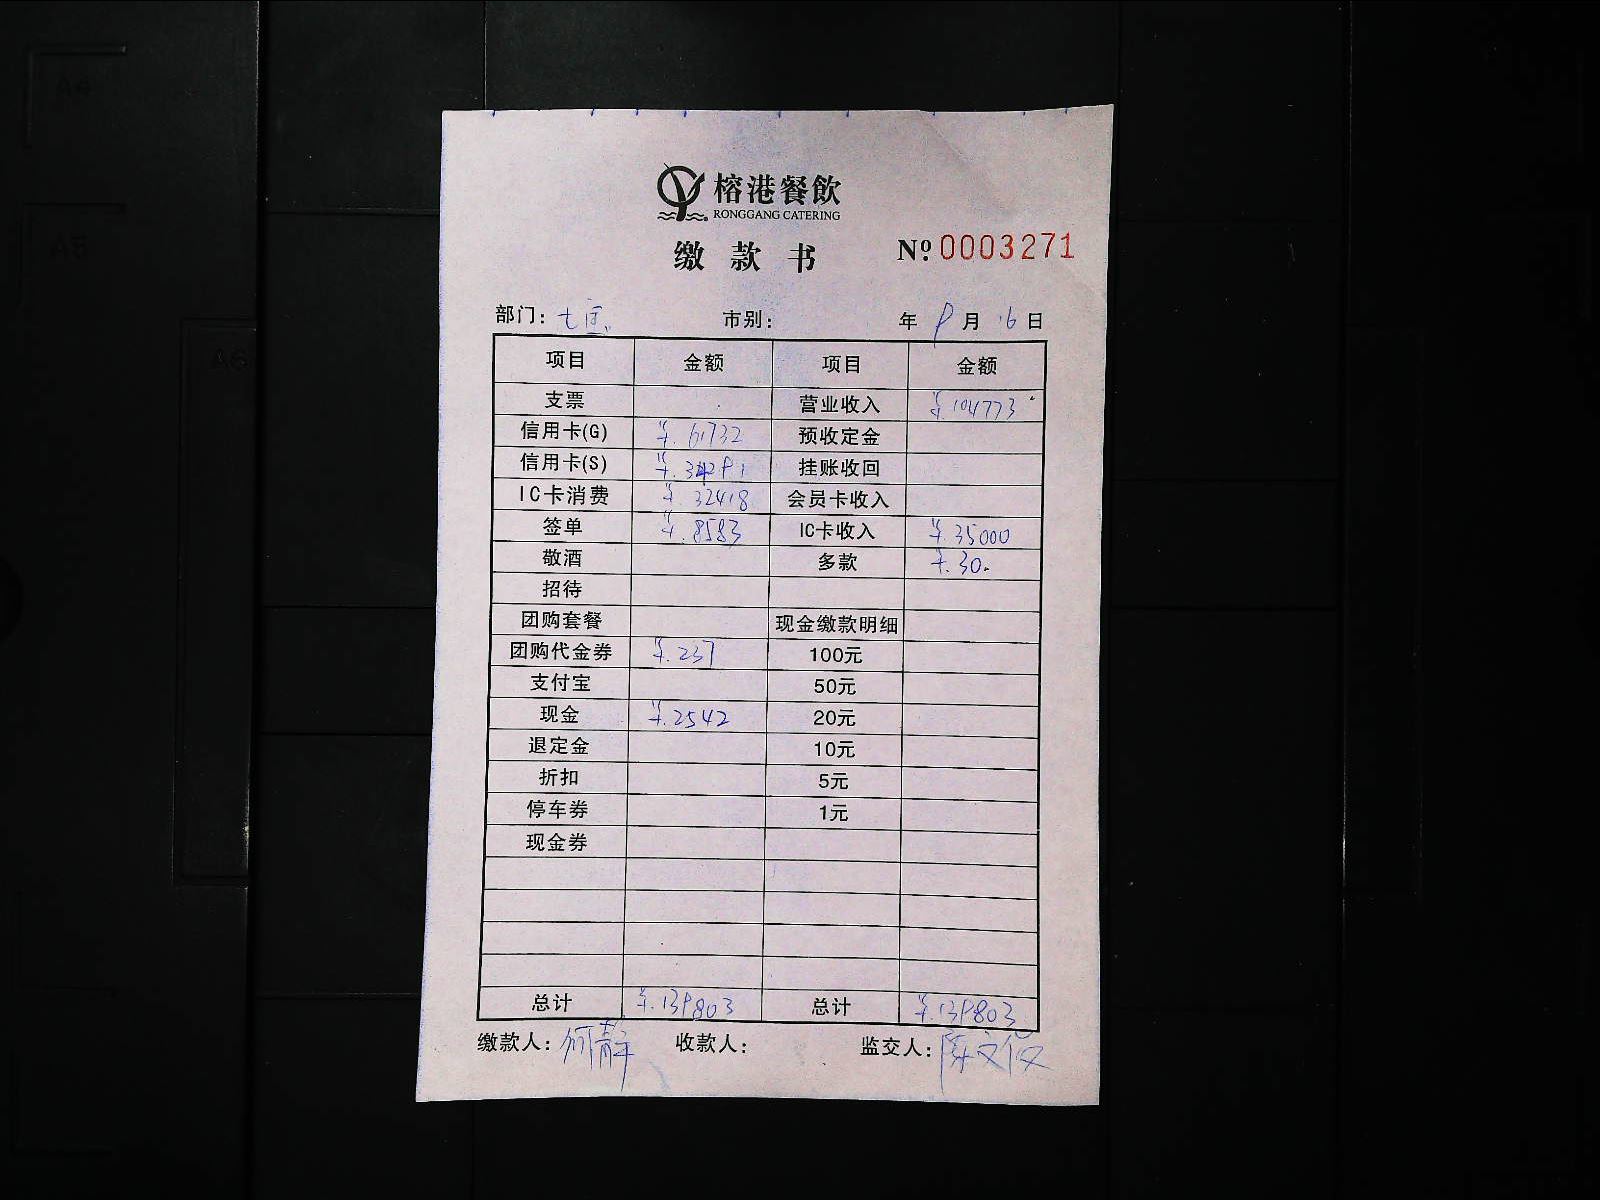 榕港餐飲
RONGGANG CATERING
缴款书 №:0003271
部门: 市别: 年 9月 16日
项目 金额 项目 金额
支票 营业收入 ¥.104773
信用卡(G) ¥.61732 预收定金
信用卡(S) ¥.34291 挂账收回
IC卡消费 ¥ 32418 会员卡收入
签单 ¥.8583 IC卡收入 ¥.35000
敬酒 多款 ¥.30.
招待
团购套餐 现金缴款明细
团购代金券 ¥.237 100元
支付宝 50元
现金 ¥.2542 20元
退定金 10元
折扣 5元
停车券 1元
现金券
总计 ¥.139803 总计 ¥.139803
缴款人:何静 收款人: 监交人:陈文俊